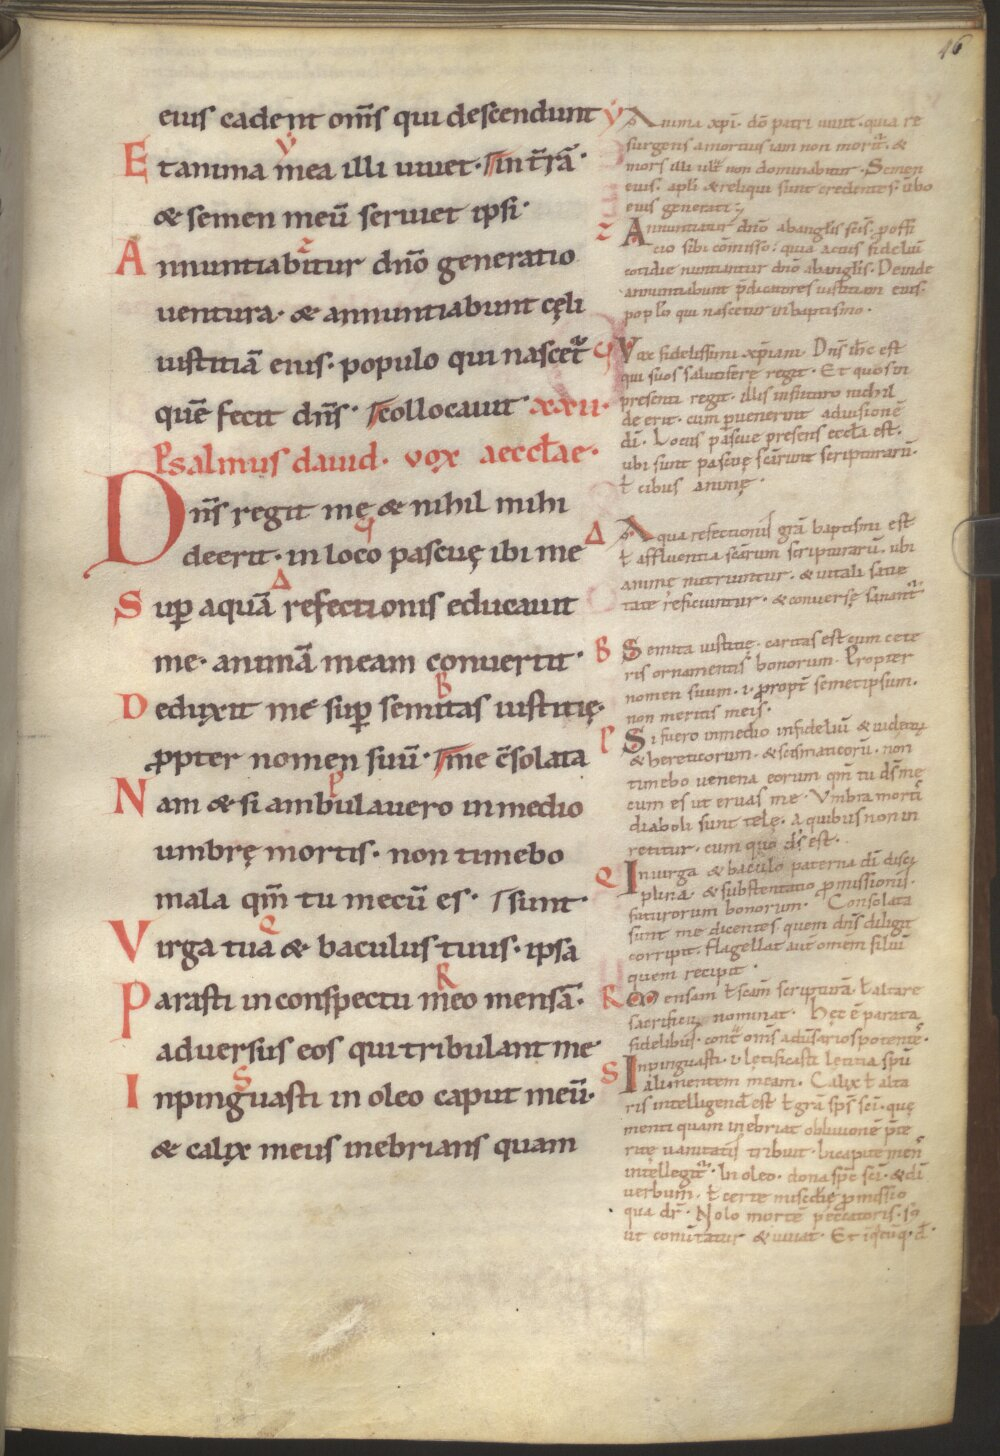 46
eius cadent om̅s qui descendunt
Et anima mea illi uiuet· in t̅rā·
& semen meū seruiet ipsi·
Annuntiabitur dn̅o generatio
uentura· & annuntiabunt cęli
iustitiā eius· populo qui nascet᷑
quē fecit dn̅s· collocauit· xxii·
Psalmus dauid· vox aeccl̅ae·
Dn̅s regit me & nihil mihi
deerit· in loco pascuę ibi me
Sup̱ aquā refectionis educauit
me· animā meam conuertit·
Deduxit me sup̱ semitas iustitię·
ꝓpter nomen suū· me c̅solata
Nam & si ambulauero in medio
umbrę mortis· non timebo
mala qm̅ tu mecū es· sunt·
Virga tua & baculus tuus· ipsa
Parasti in conspectu meo mensā·
aduersus eos qui tribulant me·
Inpinguasti in oleo caput meū·
& calix meus inebrians quam
Y Anima xp̅i· do̅ patri uiuit· quia re
surgens a mortuis iam non morit᷑· &
mors illi ult̅ non dominabitur· Semen
eius· apl̅i & reliqui sunt credentes· ūbo
eius generati;
Z Annuntiatur dn̅o ab angl̅is sc̅is· ꝓ offi
cio sibi cōmisso· quia actus fideliū
cotidie nuntiantur dn̅o ab angl̅is· Deinde
annuntiabunt p̅dicatores iustitiam eius·
poplo qui nascetur in baptismo·
Vox fidelissimi xp̅iani· Dn̅s ih̅c est
qui suos salutiferę regit· Et quos in
presenti regit· illis in futuro nichil
deerit· cum ꝑuenerint ad uisionē
di̅· Locus pascue presens eccl̅a est·
ubi sunt pascuę sc̅arum scripturarū·
ł cibus animę·
Δ Aqua refectionis gr̅a baptismi est
ł affluentia sc̅arum scripturarū· ubi
animę nutriuntur· & uitali satie
tate reficiuntur· & conuersę sanant᷑·
B Semita iustitię· caritas est cum cete
ris ornamentis bonorum· Propter
nomen suum· i· propt̅ semetipsum·
non meritis meis·
P Si fuero in medio infideliū & iudeorū
& hereticorum· & scismaticorū· non
timebo uenena eorum qm̅ tu ds̅ me
cum es ut eruas me· Vmbra mortis
diaboli sunt telę· a quibus non in
retitur· cum quo ds̅ est·
Q In uirga & baculo paterna di̅ disci
plina· & substentatio ꝓmissionis·
futurorum bonorum· Consolata
sunt me dicentes· quem dn̅s diligit
corripit· flagellat aut̅ omēm filiū
quem recipit·
R Mensam ł sc̅am scripturā· ł altare
sacrificii nominat· Hęc ē parata
fidelibus· cont̅ om̅s aduersarios potente·
S Inpinguasti· i· lętificasti letitia sp̅u
ali mentem meam· Calix ł alta
ris intelligend̅ est ł gr̅a sp̅s sc̅i· quę
menti quam inebriat obliuionē p̅te
ritę uanitatis tribuit· In capite men̅
intellegit᷑· In oleo· dona sp̅c sc̅i· & di̅
uerbum· ł certe misc̅die ꝓmissio
qua dr̅· Nolo mortē peccatoris· s;
ut conu̅tatur & uiuat·